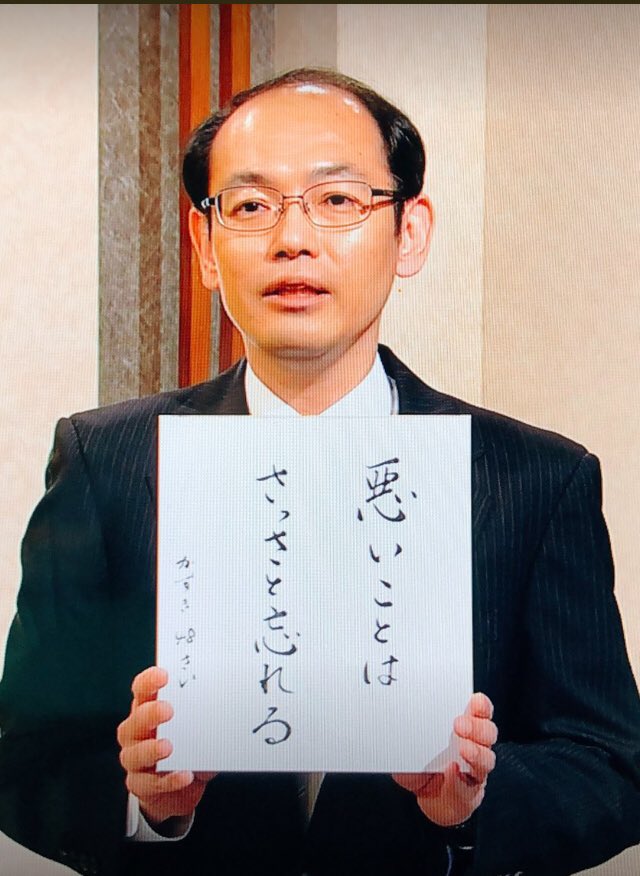 悪いことは
さっさと忘れる
かずき 48さい